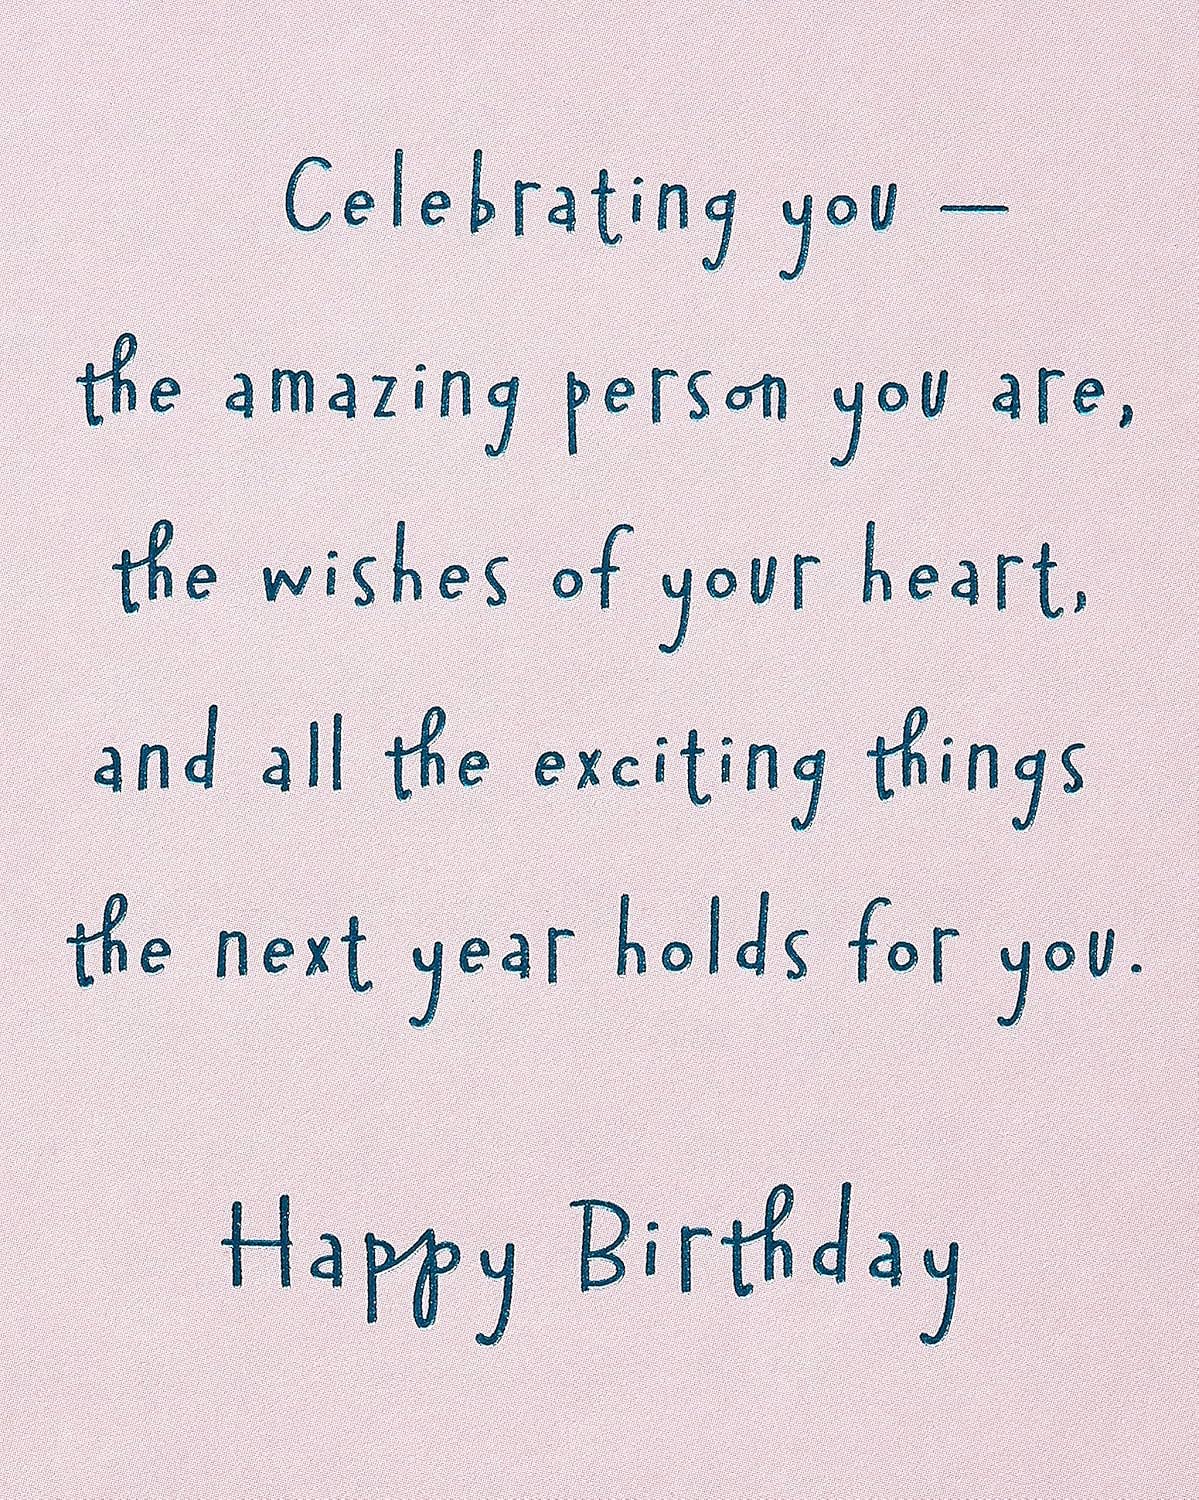 Celebrating you —
the amazing person you are,
the wishes of your heart,
and all the exciting things
the next year holds for you.
Happy Birthday